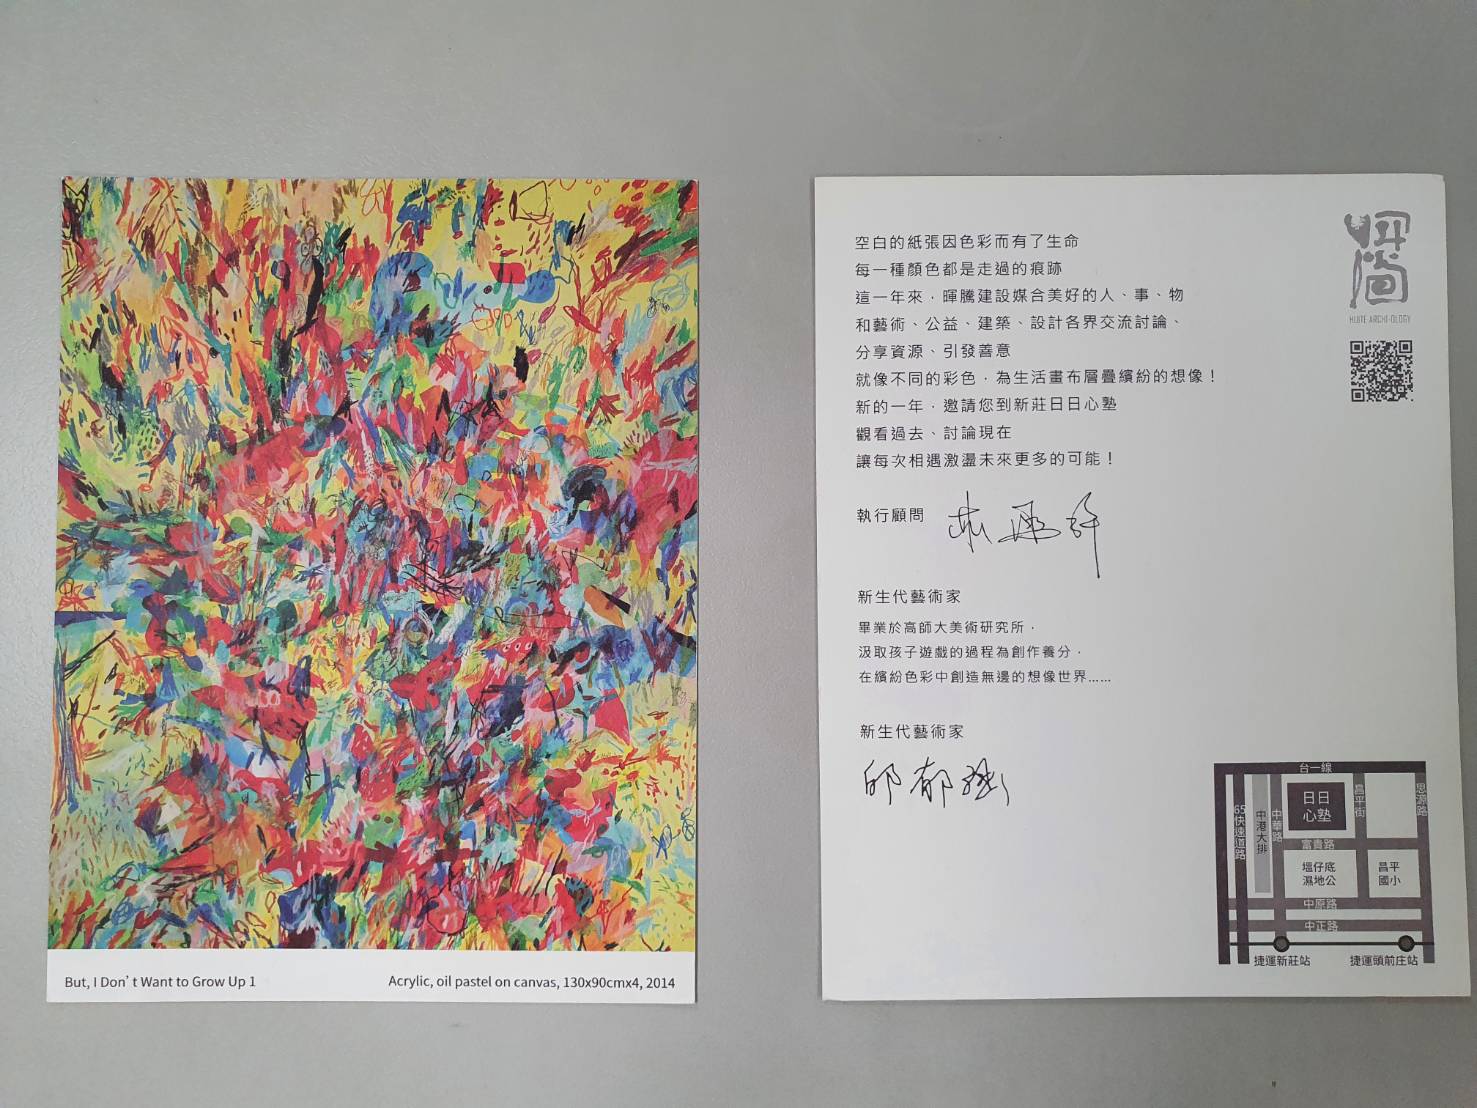 But, I Don't Want to Grow Up 1
Acrylic, oil pastel on canvas, 130x90cmx4, 2014
空白的紙張因色彩而有了生命
每一種顏色都是走過的痕跡
這一年來，暉騰建設媒合美好的人、事、物
和藝術、公益、建築、設計各界交流討論、
分享資源、引發善意
就像不同的彩色，為生活畫布層疊繽紛的想像！
新的一年，邀請您到新莊日日心塾
觀看過去、討論現在
讓每次相遇激盪未來更多的可能！
執行顧問
新生代藝術家
畢業於高師大美術研究所，
汲取孩子遊戲的過程為創作養分，
在繽紛色彩中創造無邊的想像世界......
新生代藝術家
邱郁
HUITE ARCHI-OLOGY
台一線
65快速道路
中港大排
中華路
日日
心塾
昌平街
思源路
富貴路
塭仔底
濕地公
昌平
國小
中原路
中正路
捷運新莊站
捷運頭前庄站